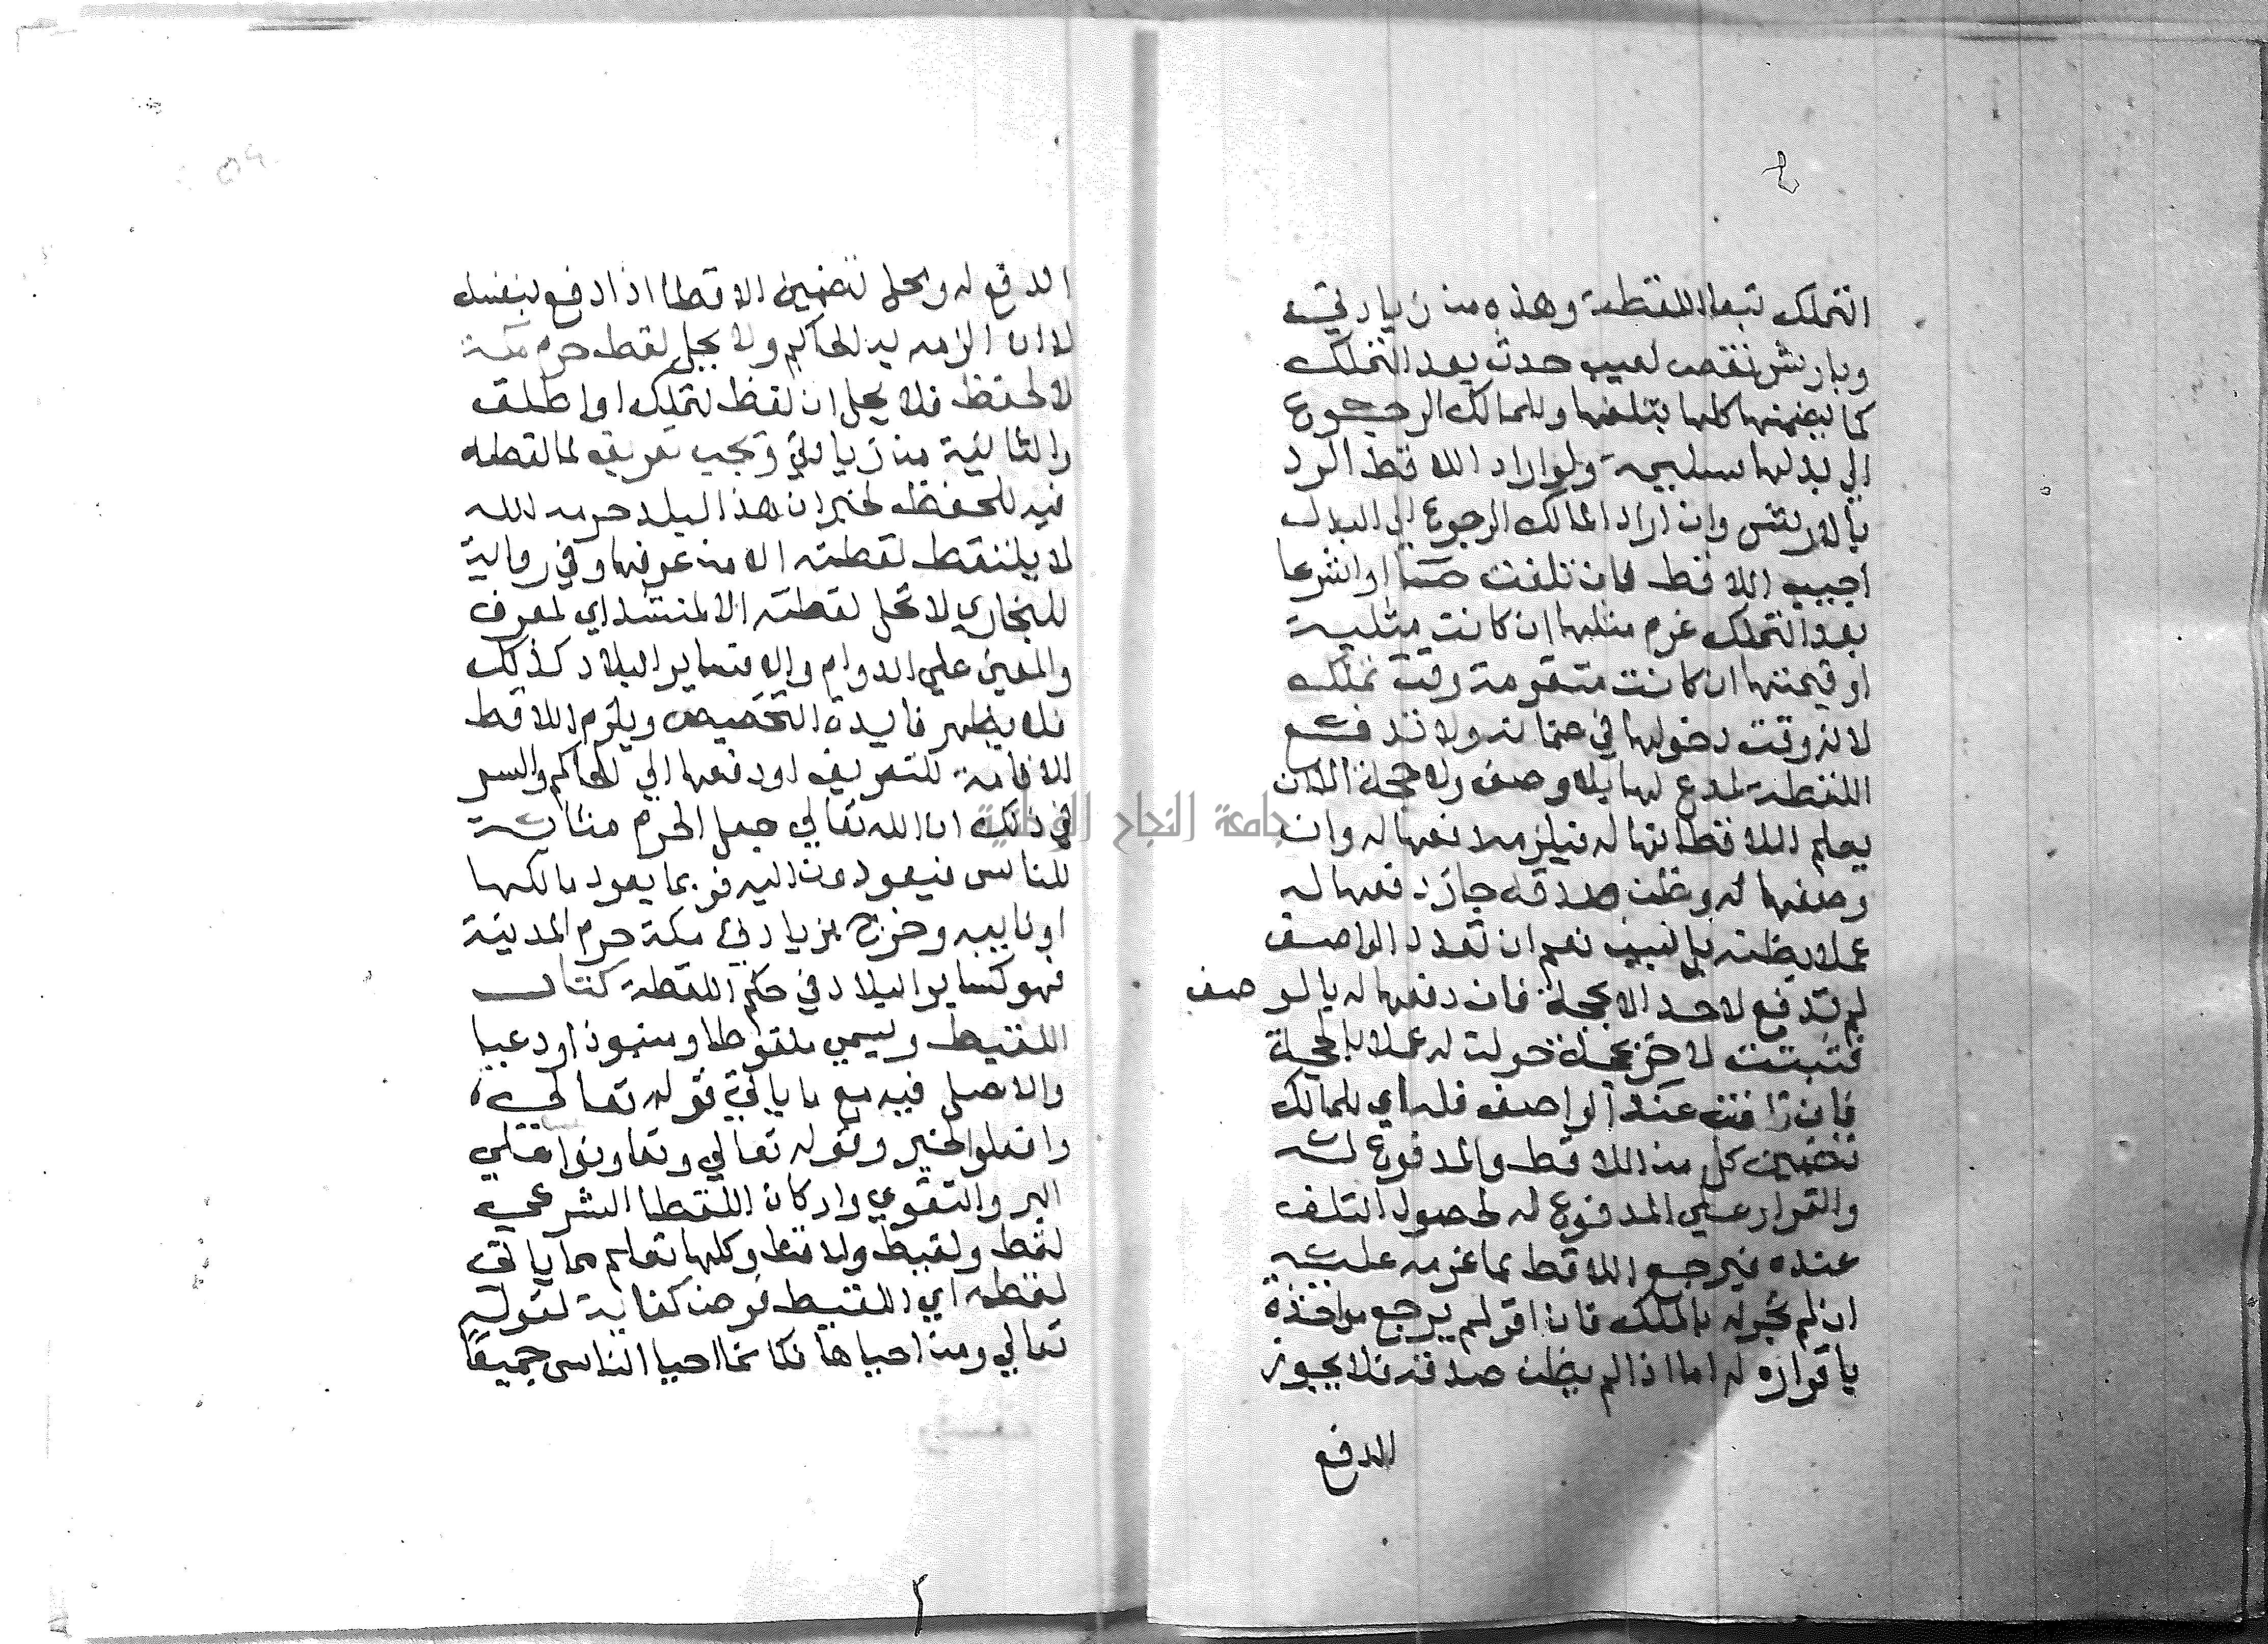 التملك تبعا للقطة وهذه من زيادتي
وبارش نقص لعيب حدث بعد التملك
كما يضمنها كلها بتلفها وللمالك الرجوع
الي بدلها سليمة ولو اراد اللاقط الرد
بالارش وان اراد المالك الرجوع الي البدل
اجيب اللاقط فان تلفت حسا او شرعا
بعد التملك غرم مثلها ان كانت مثلية
او قيمتها ان كانت متقومة وقت تملك
لانه وقت دخولها في ضمانه ولا تدفع
اللقطة لمدع لها بلا وصف ولا حجة الا ان
يعلم اللاقط انها له فيلزمه دفعها له وان
وصفها له وظن صدقه جاز دفعها له
عملا بظنه بل يسن نعم ان تعدد الواصف
لم تدفع لاحد الا بحجة فان دفعها له بالوصف
فثبتت لاخر بحجة حولت له عملا بالحجة
فان تلفت عند الواصف فله اي للمالك
تضمين كل من اللاقط والمدفوع له
والقرار علي المدفوع له لحصول التلف
عنده فيرجع اللاقط بما غرمه عليه
ان لم يقر له بالملك فان اقر لم يرجع مواخذة
باقراره له اما اذا لم يظن صدقه فلا يجوز
الدفع
الدفع له ومحل تضمين الاقط اذا دفع بنفسه
لا ان الزمه به الحاكم ولا يحل لقط حرم مكة
الا لحفظ فلا يحل ان لقط لتملك او اطلق
والثانية من زيادتي ويجب تعريف ما لقطه
فيه للحفظ لخبر ان هذا البلد حرمه الله
لا يلتقط لقطته الا من عرفها وفي رواية
للبخاري لا تحل لقطته الا لمنشد اي لمعرف
والمعني علي الدوام والا فساير البلاد كذلك
فلا يظهر فايدة التخصيص ويلزم اللاقط
الاقامة للتعريف او دفعها الي الحاكم والسر
في ذلك ان الله تعالي جعل الحرم مثابة
للناس فيعودون اليه فربما يعود مالكها
او نايبه وخرج بزيادتي مكة حرم المدينة
فهو كساير البلاد في حكم اللقطة كتاب
اللقيط ويسمي ملقوطا ومنبوذا ودعيا
والاصل فيه مع ما ياتي قوله تعالي
وافعلوا الخير وقوله تعالي وتعاونوا علي
البر والتقوي واركان اللقط الشرعي
لقط ولقيط ولاقط وكلها تعلم مما ياتي
لقطه اي اللقيط فرض كفاية لقوله
تعالي ومن احياها فكانما احيا الناس جميعا
جامعة النجاح الوطنية